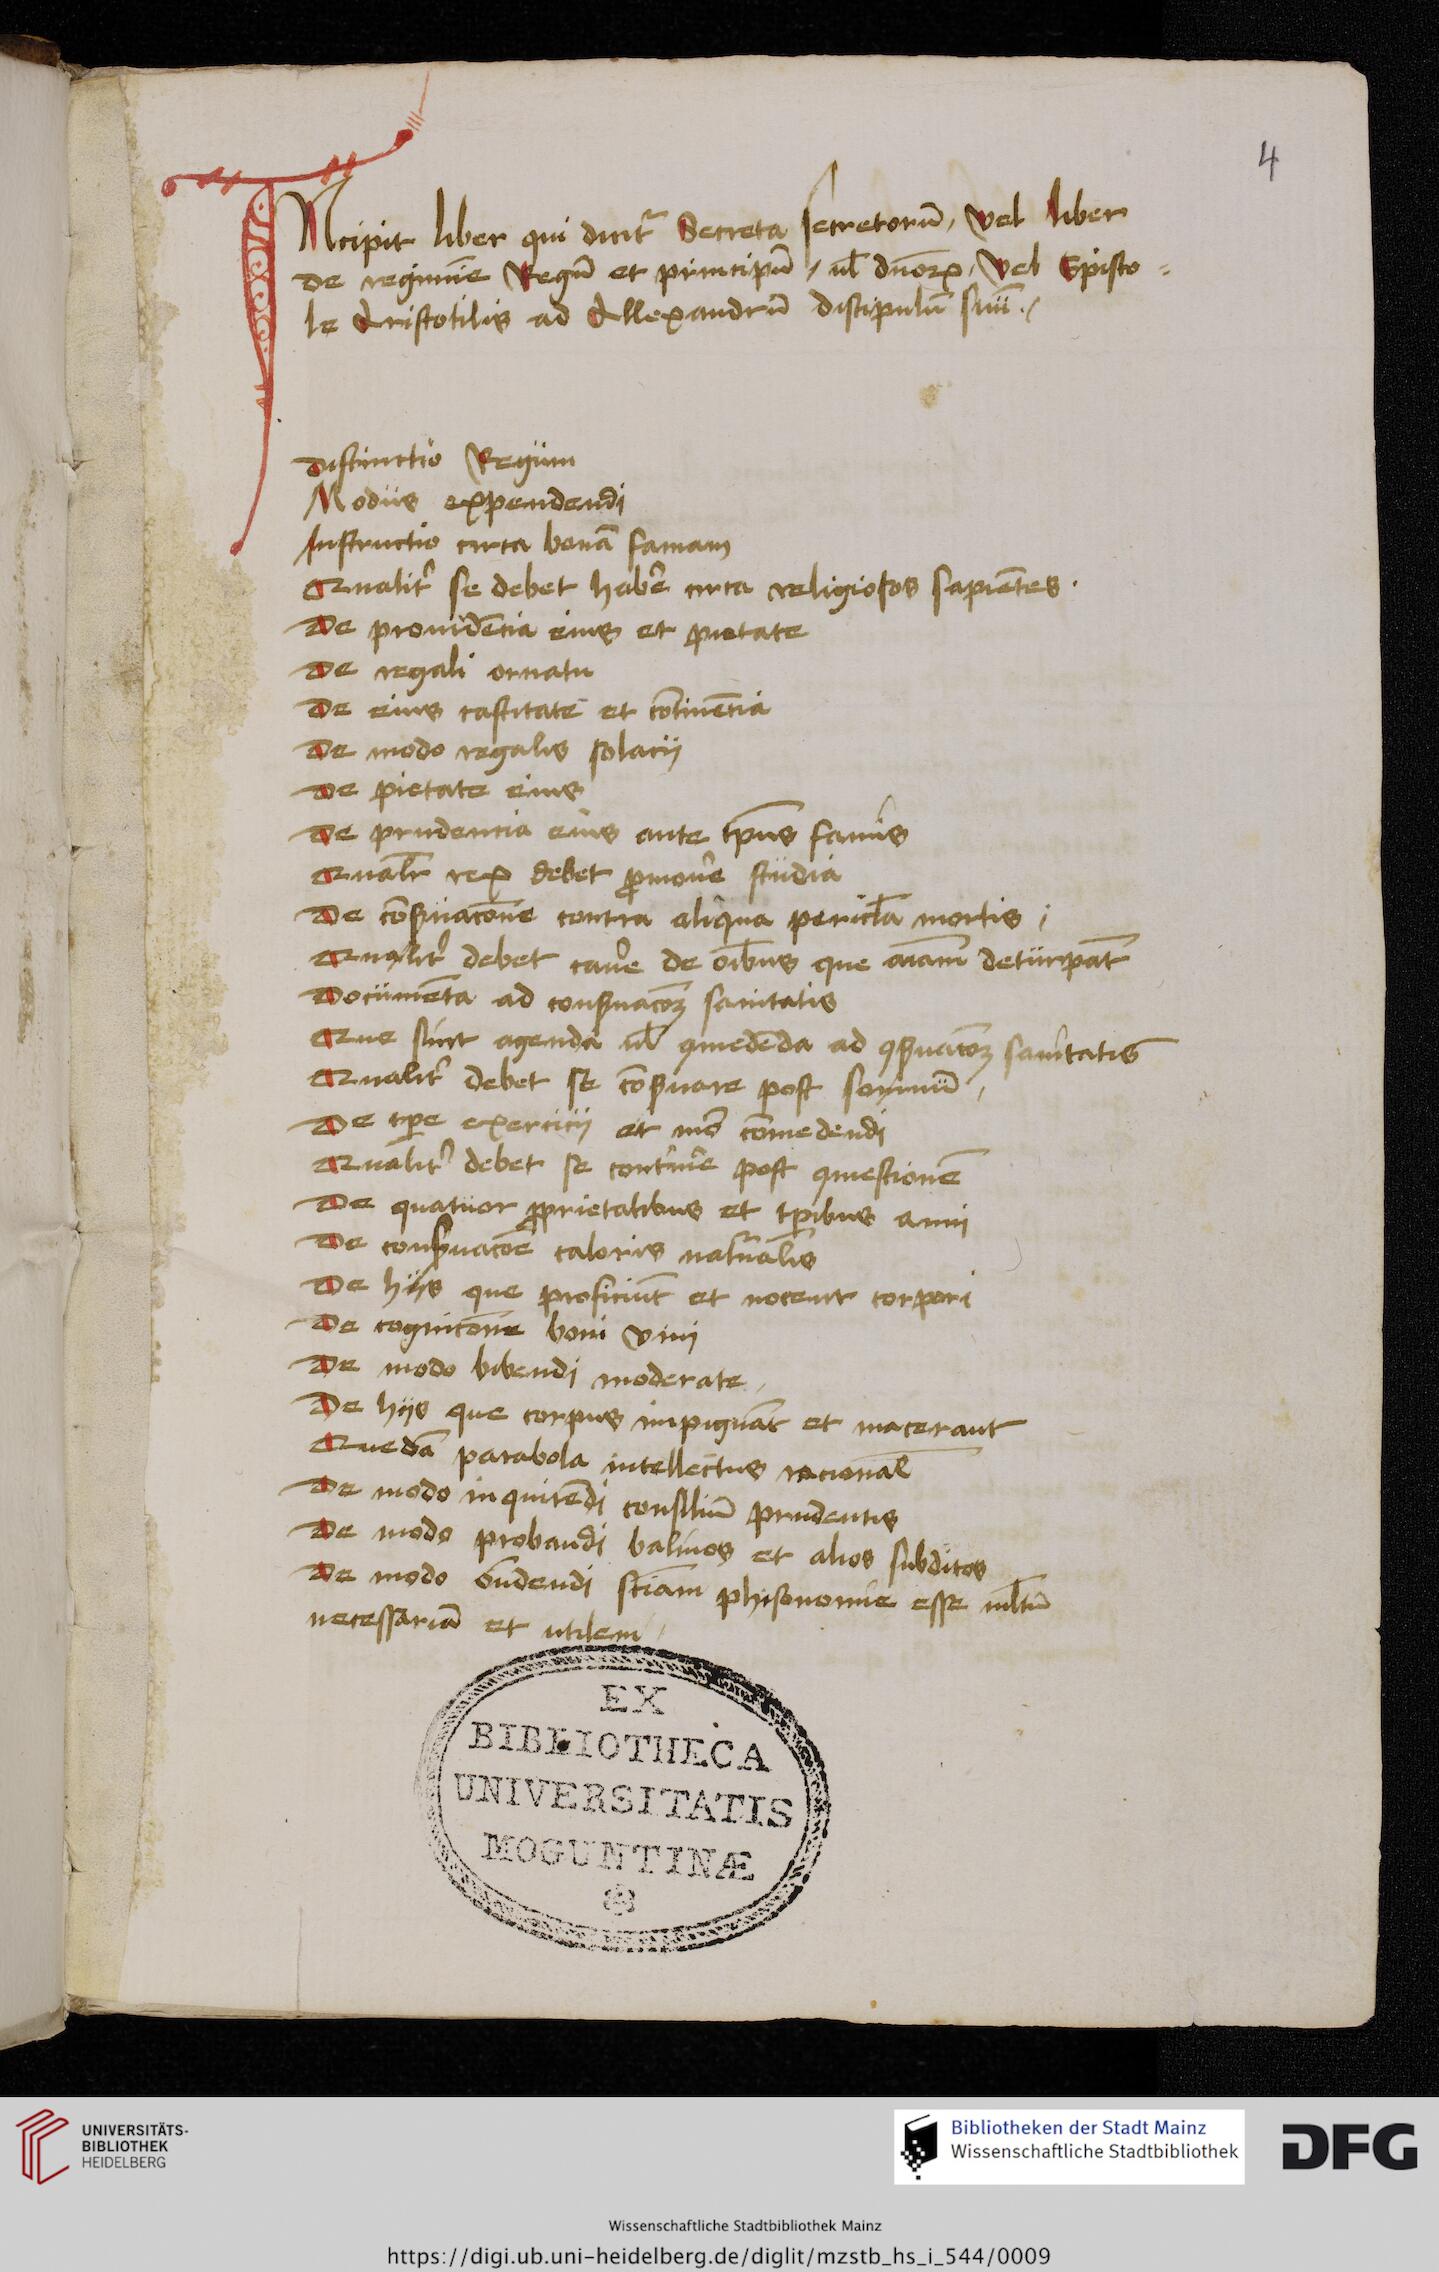 4
INcipit liber qui dicit᷑ Secreta secretorū, vel liber
de regimīe Regū et principū, ul̄ dn̄oꝝ, vel Episto=
le Aristotilis ad Allexandrū discipulū suū.
Distinctio Regum
Modus expendendi
Instructio circa bonā famam
Qualit᷑ se debet habē circa religiosos sapiētes.
De prouidēcia eius et pietate
De regali ornatu
De eius castitate et cōtinēcia
De modo regalis solacij
De pietate eius
De prudencia eius ante tp̄us famis
Qualr̄ rex debet ꝓmouē studia
De cōẜuacōne contra aliqua pericl̄a mortis
Qualit᷑ debet cauē de oībus que aīam deturpāt
Documēta ad conẜuacōꝫ sanitatis
Que sunt agenda ul̄ ꝯmedēda ad ꝯẜuacōꝫ sanitatis
Qualit᷑ debet se cōẜuare post sompnū,
De tꝑe exercicij et mō cōmedendi
Qualit᷑ debet se continē post ꝯmestionē
De quatuor ꝓprietatibus et tꝑibus anni
De conẜuacōe caloris nat᷑alis
De hijs que proficiūt et nocent corpori
De cognicōne boni vini
De modo bibendi moderate,
De hijs que corpus impiguāt et macerant
Quedā parabola intellectus racional̄
De modo inquirēdi consiliū prudentis
De modo probandi baliuos et alios subditos
De modo on̄dendi sciām phisonomie esse ml̄tū
necessariā et utilem,
EX
BIBLIOTHECA
UNIVERSITATIS
MOGUNTINÆ
UNIVERSITÄTS-
BIBLIOTHEK
HEIDELBERG
Bibliotheken der Stadt Mainz
Wissenschaftliche Stadtbibliothek
DFG
Wissenschaftliche Stadtbibliothek Mainz
https://digi.ub.uni-heidelberg.de/diglit/mzstb_hs_i_544/0009